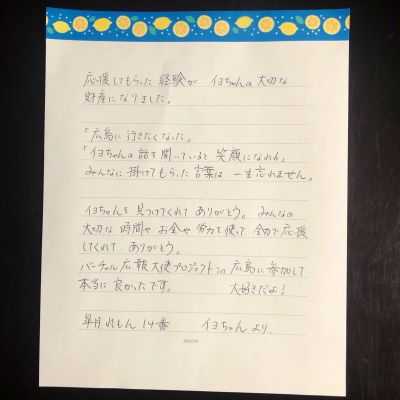 応援してもらった経験が イヨちゃんの大切な
財産になりました。
「広島に行きたくなった」
「イヨちゃんの話を聞いていると笑顔になれる」
みんなに掛けてもらった言葉は 一生忘れません。
イヨちゃんを見つけてくれて ありがとう。みんなの
大切な時間やお金や労力を使って 全力で応援
してくれて ありがとう。
バーチャル広報大使プロジェクトin広島に参加して
本当に良かったです。 大好きだよ!
皐月れもん 14番 イヨちゃんより.